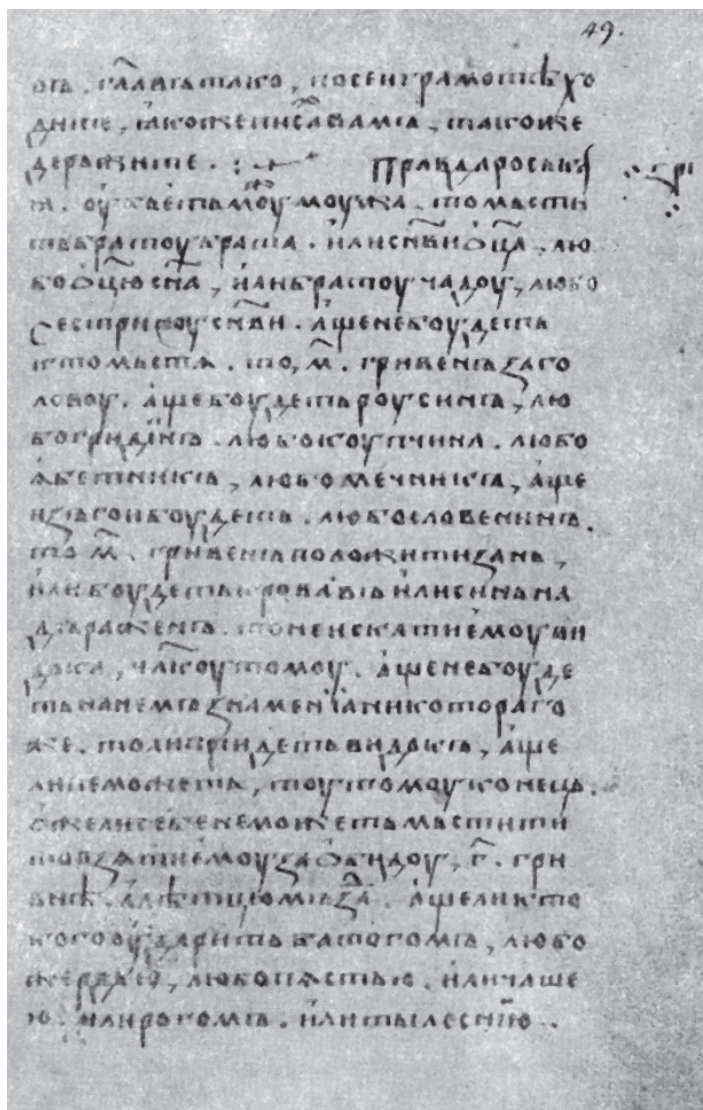 49.
имъ. гл҃авъ тако, по сеи грамотѣ хо
дите, ꙗкоже писа́х вамъ, такоже
держите. Правда роськаѧ
и. оубьеть моу моужа, то мьсти
ть братоу брата. или сн҃ви ѡц҃а, лю
бо ѡц҃ю сн҃а, или братоу чадоу, любо
сестриноу сн҃ви. аще не боудеть
кто мьстѧ. то, м҃. гривенъ за го
ловоу. аще боудеть роусинъ, лю
бо гридинъ. любо коупчина. любо
ѧбетникъ, любо мечникъ, аще
изъгои боудеть. любо словенинъ.
то м҃. гривенъ положити за нь,
или боудеть кровавъ или синь на
дъраженъ. то не искати емоу ви
дока, чл҃коу томоу. аще не боуде
ть на немъ знаменїа никотораго
же. то ли приидеть видокъ, аще
ли не можеть, тоу томоу конець.
оже ли себе не можеть мьстити
то взѧти емоу за ѡбидоу, г҃. гри
внѣ. а лѣтцю мъзда. аще ли кто
кого оударить батогомъ, любо
жердью, любо пѧстью. или чаше
ю. или рогомъ. или тылеснїю.